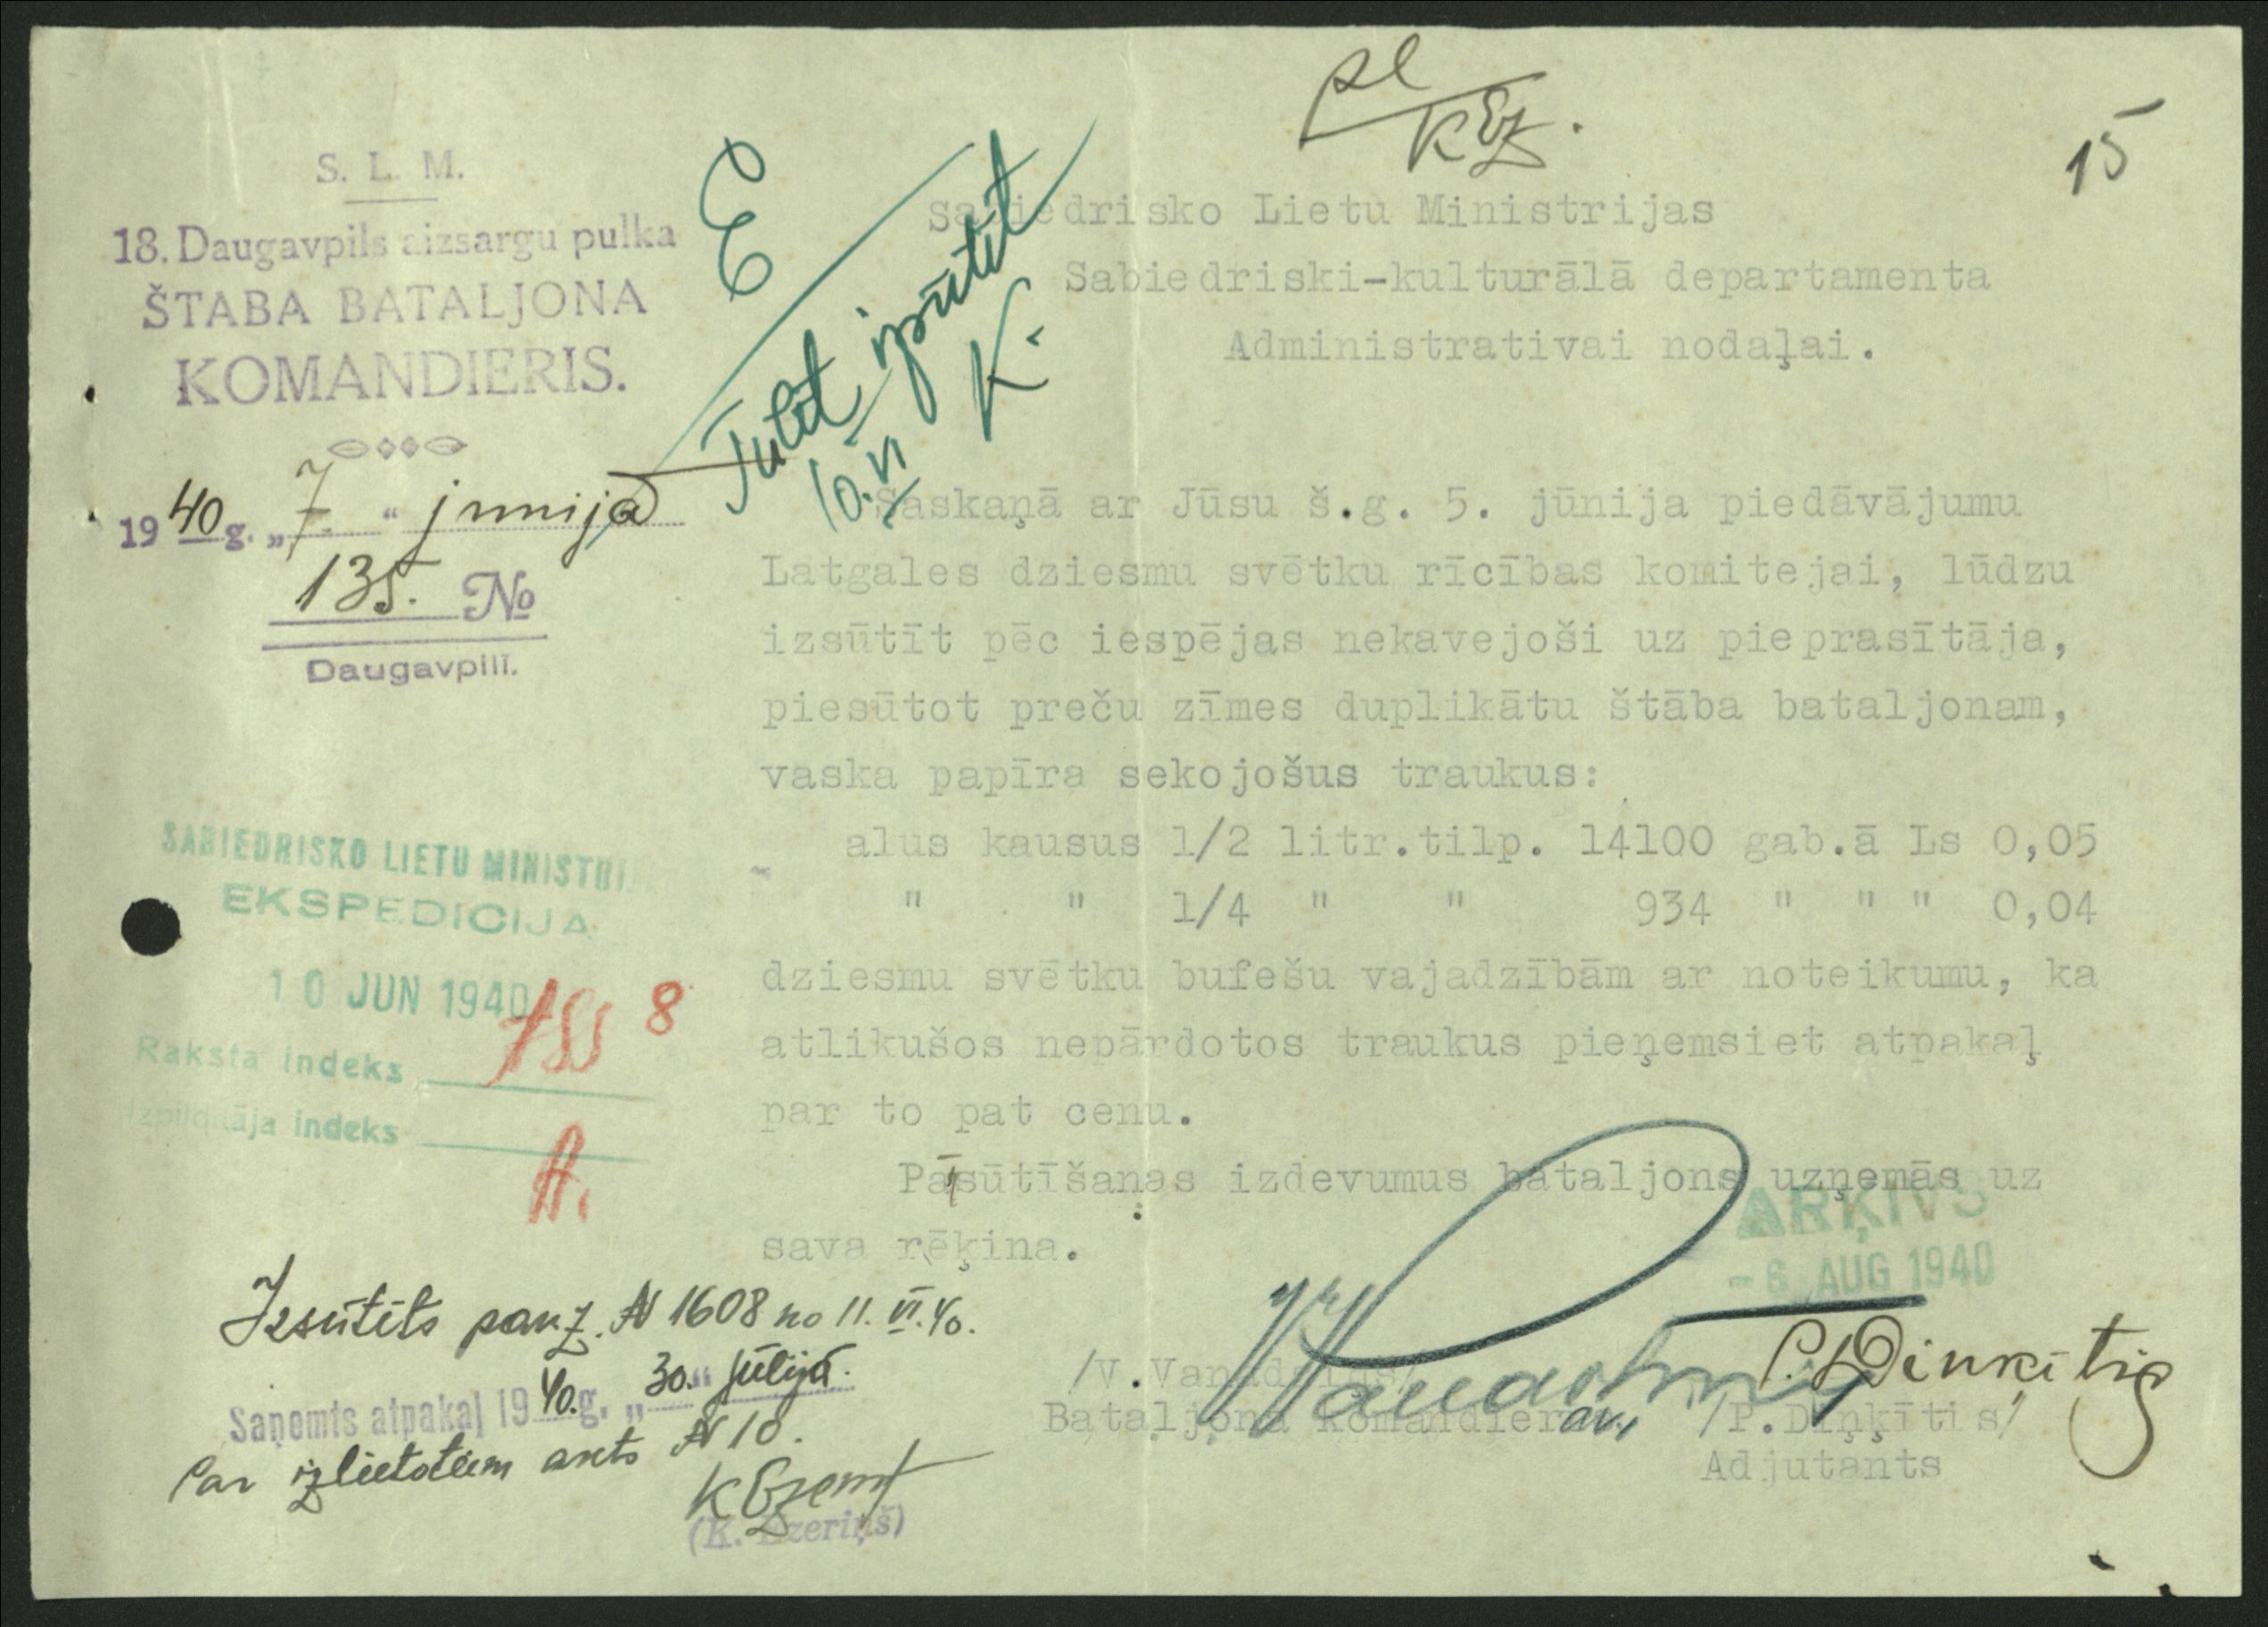 S. L. M.
18. Daugavpils aizsargu pulka
ŠTABA BATALJONA
KOMANDIERIS.
1940 g. „7. “ junijā
135. №
Daugavpilī.
E
Tulīt izpūtīt
10.VI K.
pl
KEz.
15
Sabiedrisko Lietu Ministrijas
Sabiedriski-kulturālā departamenta
Administrativai nodaļai.
Saskaņā ar Jūsu š.g. 5. jūnija piedāvājumu
Latgales dziesmu svētku rīcības komitejai, lūdzu
izsūtīt pēc iespējas nekavejoši uz pieprasītāja,
piesūtot preču zīmes duplikātu štāba bataljonam,
vaska papīra sekojošus traukus:
alus kausus 1/2 litr.tilp. 14100 gab.ā Ls 0,05
" " 1/4 " " 934 " " " 0,04
dziesmu svētku bufešu vajadzībām ar noteikumu, ka
atlikušos nepārdotos traukus pieņemsiet atpakaļ
par to pat cenu.
Pāsūtīšanas izdevumus bataljons uzņemās uz
sava rēķina.
SABIEDRISKO LIETU MINISTRI
EKSPEDICIJA
10 JUN 1940
8
Raksta indeks
Izpildītāja indeks
A.
ARĶIVS
- 6 AUG 1940
Izsūtīts pavz. № 1608 no 11. VI. 40.
Saņemts atpakaļ 1940. g. „30.“ jūlijā.
Par izlietotiem akts № 10.
K Ezeriņš
(K. Ezeriņš)
P. Dinkītis
Bataljona komandiera v.
/P.Diņķītis/
Adjutants